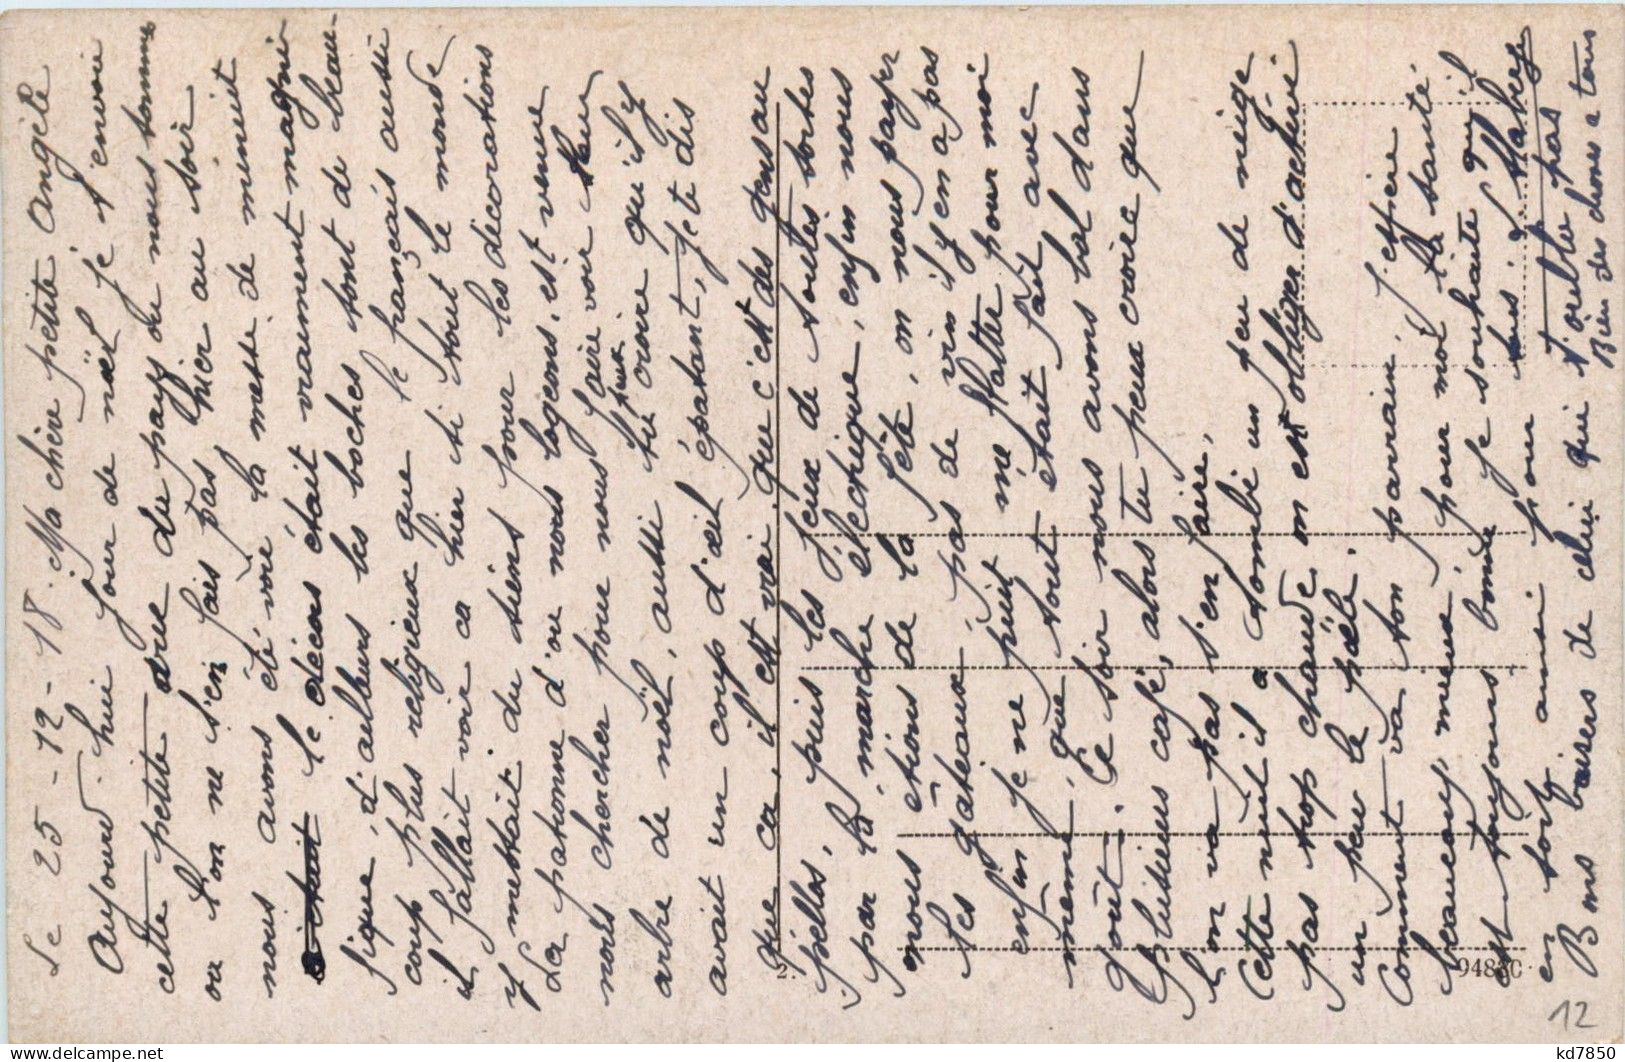 Le 25-12-18. Ma chère petite Angèle
Aujourd'hui jour de naël je t'envoie
cette petite vue du pays ou nous somme
ou l'on ne s'en fais pas hier au soir
nous avons été voir la messe de minuit
le décors était vraiment magni-
fique, d'ailleurs les boches sont de beau-
coup plus religieux que le français aussi
il fallait voir ca hier si tout le monde
y mettait du siens pour les décorations
La patronne d'ou nous logeons, est venue
nous chercher pour nous faire voir leur
arbre de noël, aussi tu peux croire qu'il y
avait un coup d'œil épatant, je te dis
que ca, il est vrai que c'est des gens au
puis les jeux de toutes sortes
par la marche électrique, enfin nous
nous étions de la fête, on nous paya
les gâteaux pas de vin il y en a pas
enfin je ne puit me flatter pour moi
même, que tout était fait avec
goût. Ce soir nous avons bal dans
plusieurs café, alors tu peux croire que
l'on va pas s'en faire.
Cette nuit il a tombé un peu de neige
pas trop chaude on est obliger d'activé
un peu le poële.
Comment va ton parrain, j'espère
beaucoup mieux, pour moi la santé
est toujours bonne je souhaite qu'il
en soit ainsi pour tous
Bons baisers de celui qui t'oublie pas
Bien des choses a tous
2.
9488C
12
kd7850